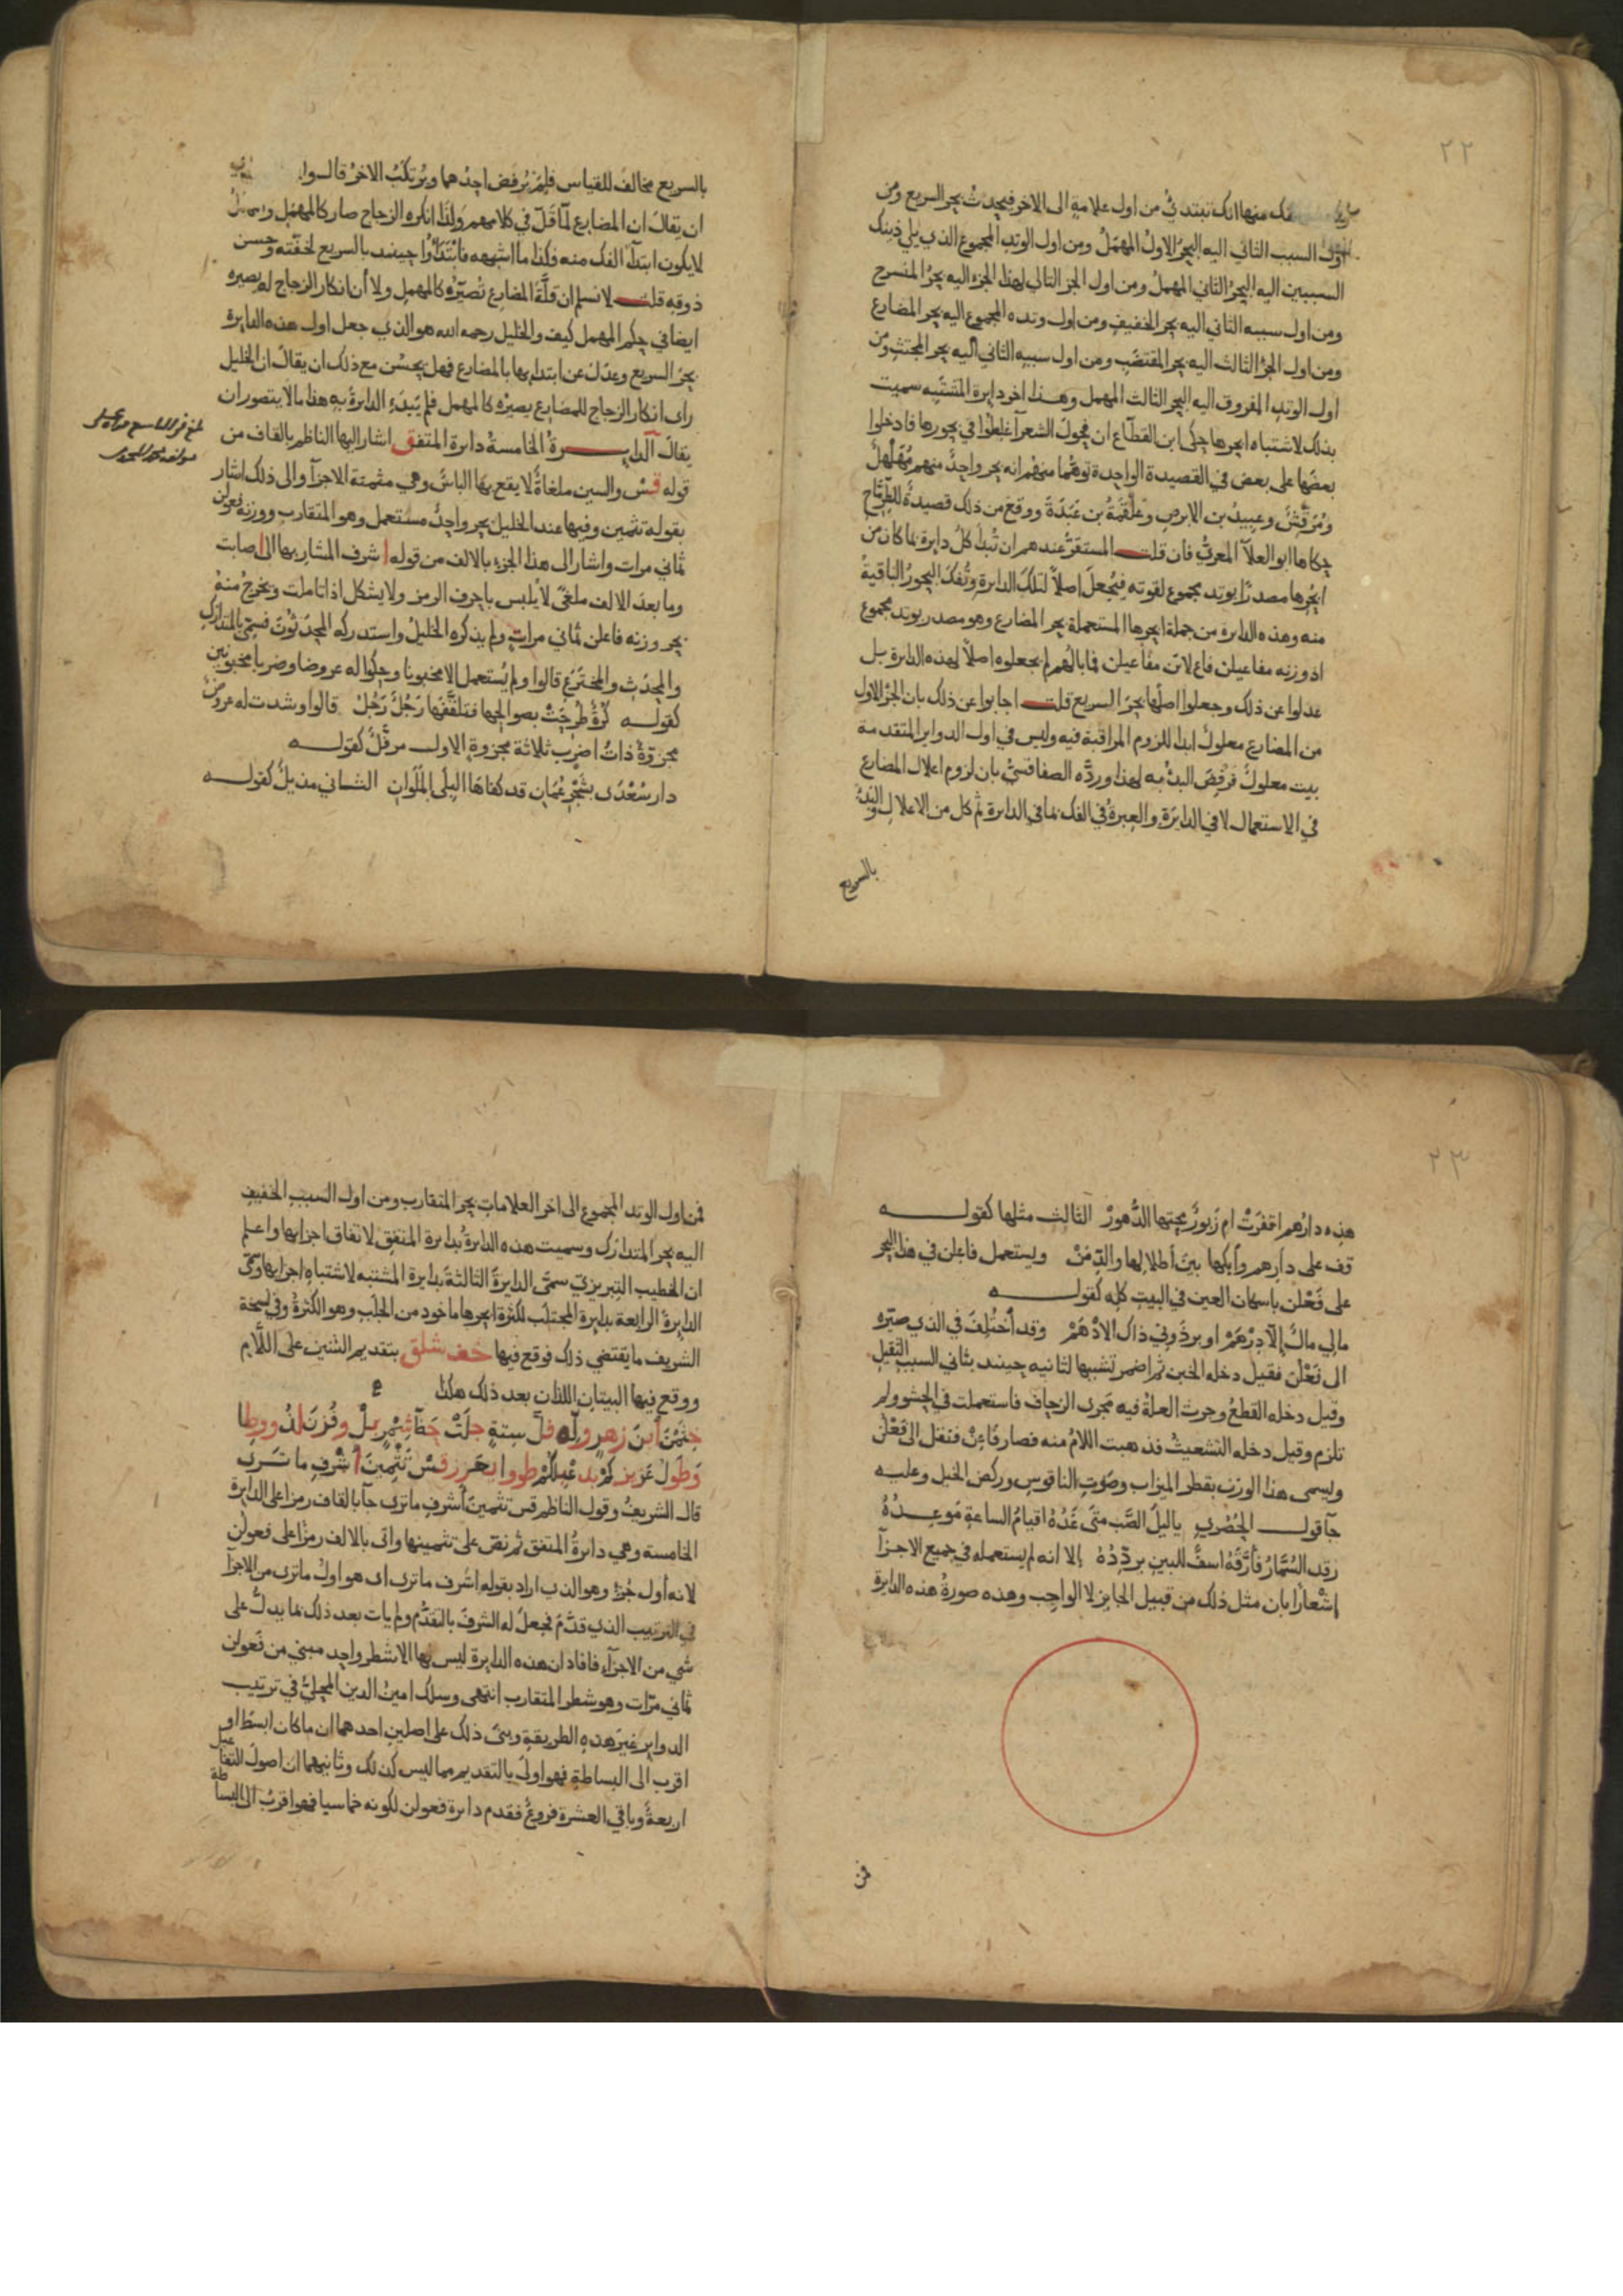 ٢٢
فك منها انك تبتدئ من اول علامة الى الاخر فيحدث بحر السريع ومن
اول السبب الثاني اليه البحر الاول المهمل ومن اول الوتد المجموع الذي يلي ذينك
السببين اليه البحر الثاني المهمل ومن اول الجز التالي لهذا الجزء اليه بحر المنسرح
ومن اول سببه الثاني اليه بحر الخفيف ومن اول وتده المجموع اليه بحر المضارع
ومن اول الجزء الثالث اليه بحر المقتضب ومن اول سببه الثاني اليه بحر المجتث ومن
اول الوتد المفروق اليه البحر الثالث المهمل وهذا اخر دايرة المشتبه سميت
بذلك لاشتباه ابحرها حكى ابن القطاع ان فحول الشعرا غلطوا في بحورها فادخلوا
بعضها على بعض في القصيدة الواحدة توهما منهم انه بحر واحد منهم مهلهل
ومرقش وعبيد بن الابرص وعلقمة بن عبدة ووقع من ذلك قصيدة للطرماح
حكاها ابو العلا المعري فان قلت المستقر عندهم ان تبدا كل دايرة بما كان من
ابحرها مصدرا بوتد مجموع لقوته فيجعل اصلا لتلك الدايرة وتفك البحور الباقية
منه وهذه الدايرة من جملة ابحرها المستعملة بحر المضارع وهو مصدر بوتد مجموع
اذ وزنه مفاعيلن فاع لاتن مفاعيلن فما بالهم لم يجعلوه اصلا لهذه الدايرة بل
عدلوا عن ذلك وجعلوا اصلها بحر السريع قلت اجابوا عن ذلك بان الجز الاول
من المضارع معلول ابدا للزوم المراقبة فيه وليس في اول الدواير المتقدمة
بيت معلول فرفض البدء به لهذا ورده الصفاقسي بان لزوم اعلال المضارع
في الاستعمال لا في الدايرة والعبرة في الفك بما في الدايرة ثم كل من الاعلال والبدء
بالسريع
بالسريع مخالف للقياس فلم يرفض احدهما ويرتكب الاخر قالوا
ان يقال ان المضارع لما قل في كلامهم ولذا انكره الزجاج صار كالمهمل والمهمل
لا يكون ابتدآ الفك منه فكذا ما اشبهه فابتدأوا حينئذ بالسريع لخفته وحسن
ذوقه قلت لا نسلم ان قلة المضارع تصيره كالمهمل ولا أن انكار الزجاج له يصيره
ايضا في حكم المهمل كيف والخليل رحمه الله هو الذي جعل اول هذه الدايرة
بحر السريع وعدل عن ابتدايها بالمضارع فهل يحسن مع ذلك ان يقال ان الخليل
راى انكار الزجاج للمضارع يصيره كالمهمل فلم يبدء الدايرة به هذا ما لا يتصور ان
يقال الدايرة الخامسة دايرة المتفق اشار اليها الناظم بالقاف من
قوله قس والسين ملغاة لا يقع بها الباس وهي مثمنة الاجزآ والى ذلك اشار
بقوله تثمين وفيها عند الخليل بحر واحد مستعمل وهو المتقارب ووزنه فعولن
ثماني مرات واشار الى هذا الجزء بالالف من قوله اشرف المشار بها الى اصابت
وما بعد الالف ملغى لا يلبس باحرف الرمز ولا يشكل اذا تاملت ويخرج منه
بحر وزنه فاعلن ثماني مرات ولم يذكره الخليل واستدركه المحدثون فسمي بالمتدارك
والمحدث والمخترع قالوا ولم يستعمل الا مخبونا وحكوا له عروضا وضربا مخبونين
كقوله كرة طرحت بصوالجها فتلقفها رجل رجل قالوا وشذت له عروض
مجزوة ذات اضرب ثلاثة مجزوة الاول مرفل كقوله
دار سعدى بشحر عمان قد كفاها البلى الملوان الثاني مذيل كقوله
٢٣
هذه دارهم اقفرت ام زبور محتها الدهور الثالث مثلها كقوله
قف على دارهم وابكها بين اطلالها والدمن ويستعمل فاعلن في هذا البحر
على فعلن باسكان العين في البيت كله كقوله
مالي مال الا درهم او برذوني ذاك الادهم وقد اختلف في الذي صيره
الى فعلن فقيل دخله الخبن ثم اضمر تشبيها لثانيه حينئذ بثاني السبب الثقيل
وقيل دخله القطع وجرت العلة فيه مجرى الزحاف فاستعملت في الحشو ولم
تلزم وقيل دخله التشعيث فذهبت اللام منه فصار فاعن فنقل الى فعلن
ويسمى هذا الوزن بقطر الميزاب وصوت الناقوس وركض الخيل وعليه
جا قول الحصري يا ليل الصب متى غده اقيام الساعة موعده
رقد السمار فأرقه اسف للبين يردده الا انه لم يستعمله في جميع الاجزآ
اشعارا بان مثل ذلك من قبيل الجايز لا الواجب وهذه صورة هذه الدايرة
فمن
فمن اول الوتد المجموع الى اخر العلامات بحر المتقارب ومن اول السبب الخفيف
اليه بحر المتدارك وسميت هذه الدايرة بدايرة المتفق لاتفاق اجزايها واعلم
ان الخطيب التبريزي سمى الدايرة الثالثة بدايرة المشتبه لاشتباه اجزايها وسمى
الدايرة الرابعة بدايرة المجتلب لكثرة ابحرها ماخوذ من الجلب وهو الكثرة وفي نسخة
الشريف ما يقتضي ذلك فوقع فيها خف شلق بتقديم الشين على اللام
ووقع فيها البيتان اللذان بعد ذلك هكذا
وطول عزيز كم بد
قس تثمين اشرف ما ترى
قال الشريف وقول الناظم قس تثمين أشرف ما ترى جآ بالقاف رمزا على الدايرة
الخامسة وهي دايرة المتفق ثم نص على تثمينها واتى بالالف رمزا على فعولن
لانه أول جزء وهو الذي اراد بقوله اشرف ما ترى اى هو اول ما ترى من الاجزآ
في الترتيب الذي قدم فجعل له الشرف بالتقدم ولم يات بعد ذلك بما يدل على
شي من الاجزآء فافاد ان هذه الدايرة ليس لها الا شطر واحد مبني من فعولن
ثماني مرات وهو شطر المتقارب انتهى وسلك امين الدين المحلي في ترتيب
الدواير غير هذه الطريقة وبنى ذلك على اصلين احدهما ان ما كان ابسط او
اقرب الى البساطة فهو اولى بالتقديم مما ليس كذلك وثانيهما ان اصول التفاعيل
اربعة وباقي العشرة فروع فقدم دايرة فعولن لكونه خماسيا فهو اقرب الى البساطة